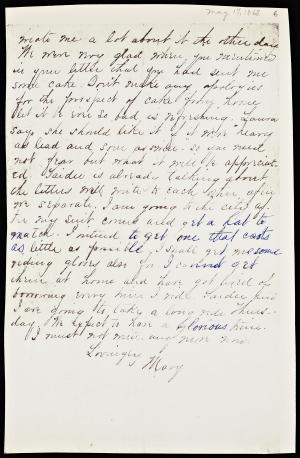 wrote me a lot about it the other day
We were very glad when you mentioned
in your letter that you had sent me
some cake. Don't make any apologies
for the prospect of cake from home
let it be ever so bad, is refreshing. Laura
says she should like it if it was heavy
as lead and sour as well. so you need
not fear but what it will be appreciat
ed. Saidee is already talking about
the letters we'll write to each other after
we separate. I am going to the city af-
ter my suit comes and get a hat to
match. I intend to get one that costs
as little as possible. I shall get me some
riding gloves also for I cannot get
them at home and have got tired of
borrowing every time I ride. Saidee and
I are going to take a long ride Thurs-
day. We expect to have a glorious time.
I must not write any more now.
Lovingly
Mary
6